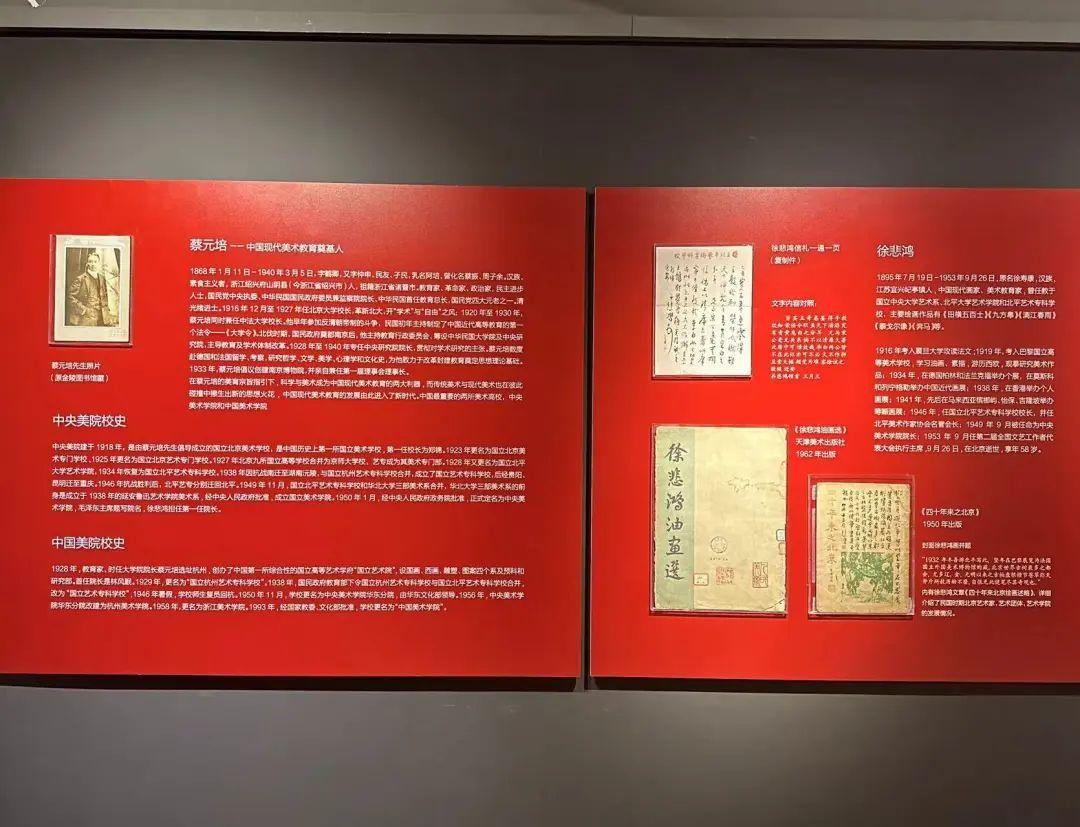 蔡元培 -- 中国现代美术教育奠基人
1868 年 1 月 11 日 - 1940 年 3 月 5 日，字鹤卿，又字仲申、民友、孑民，乳名阿培，曾化名蔡振、周子余，汉族，
素食主义者，浙江绍兴府山阴县（今浙江省绍兴市）人，祖籍浙江省诸暨市。教育家、革命家、政治家，民主进步
人士，国民党中央执委、中华民国国民政府委员兼监察院院长，中华民国首任教育总长，国民党四大元老之一。清
光绪进士。1916 年 12 月至 1927 年任北京大学校长，革新北大，开"学术"与"自由"之风；1920 年至 1930 年，
蔡元培同时兼任中法大学校长。他早年参加反清朝帝制的斗争，民国初年主持制定了中国近代高等教育的第一
个法令——《大学令》。北伐时期，国民政府奠都南京后，他主持教育行政委员会、筹设中华民国大学院及中央研
究院，主导教育及学术体制改革。1928 年至 1940 年专任中央研究院院长，贯彻对学术研究的主张。蔡元培数度
赴德国和法国留学、考察，研究哲学、文学、美学、心理学和文化史，为他致力于改革封建教育奠定思想理论基础。
1933 年，蔡元培倡议创建南京博物院，并亲自兼任第一届理事会理事长。
在蔡元培的美育宗旨指引下，科学与美术成为中国现代美术教育的两大利器，而传统美术与现代美术也在彼此
碰撞中擦生出新的思想火花，中国现代美术教育的发展由此进入了新时代。中国最重要的两所美术高校，中央
美术学院和中国美术学院
蔡元培先生照片
（原金陵图书馆藏）
中央美院校史
中央美院建于 1918 年，是由蔡元培先生倡导成立的国立北京美术学校，是中国历史上第一所国立美术学校，第一任校长为郑锦。1923 年更名为国立北京美
术专门学校，1925 年更名为国立北京艺术专门学校。1927 年北京九所国立高等学校合并为京师大学校，艺专成为其美术专门部。1928 年又更名为国立北平
大学艺术学院，1934 年恢复为国立北平艺术专科学校。1938 年因抗战南迁至湖南沅陵，与国立杭州艺术专科学校合并，成立了国立艺术专科学校，后经贵阳、
昆明迁至重庆。1946 年抗战胜利后，北平艺专分别迁回北平。1949 年 11 月，国立北平艺术专科学校和华北大学三部美术系合并，华北大学三部美术系的前
身是成立于 1938 年的延安鲁迅艺术学院美术系，经中央人民政府批准，成立国立美术学院。1950 年 1 月，经中央人民政府政务院批准，正式定名为中央美
术学院，毛泽东主席题写院名，徐悲鸿担任第一任院长。
中国美院校史
1928 年，教育家、时任大学院院长蔡元培选址杭州，创办了中国第一所综合性的国立高等艺术学府"国立艺术院"，设国画、西画、雕塑、图案四个系及预科和
研究部。首任院长是林风眠。1929 年，更名为"国立杭州艺术专科学校"。1938 年，国民政府教育部下令国立杭州艺术专科学校与国立北平艺术专科学校合并，
改为"国立艺术专科学校"，1946 年暑假，学校师生复员回杭。1950 年 11 月，学校更名为中央美术学院华东分院，由华东文化部领导。1956 年，中央美术学
院华东分院改建为杭州美术学院。1958 年，更名为浙江美术学院。1993 年，经国家教委、文化部批准，学校更名为"中国美术学院"。
徐悲鸿信札一通一页
（复制件）
文字内容对照：
徐悲鸿
1895 年 7 月 19 日 - 1953 年 9 月 26 日，原名徐寿康，汉族，
江苏宜兴屺亭镇人，中国现代画家、美术教育家，曾任教于
国立中央大学艺术系、北平大学艺术学院和北平艺术专科学
校，主要绘画作品有《田横五百士》《九方皋》《漓江春雨》
《泰戈尔像》《奔马》等。
1916 年考入震旦大学攻读法文；1919 年，考入巴黎国立高
等美术学校，学习油画、素描，游历西欧，观摩研究美术作
品；1934 年，在德国柏林和法兰克福举办个展，在莫斯科
和列宁格勒举办中国近代画展；1938 年，在香港举办个人
画展；1941 年，先后在马来西亚槟榔屿、怡保、吉隆坡举办
等赈画展；1946 年，任国立北平艺术专科学校校长，并任
北平美术作家协会名誉会长；1949 年 9 月被任命为中央
美术学院院长；1953 年 9 月任第二届全国文艺工作者代
表大会执行主席，9 月 26 日，在北京逝世，享年 58 岁。
《徐悲鸿油画选》
天津美术出版社
1962 年出版
徐悲鸿油画选
《四十年来之北京》
1950 年出版
封面徐悲鸿画并题
内有徐悲鸿文章《四十年来北京绘画述略》，详细
介绍了民国时期北京艺术家、艺术团体、艺术学院
的发展情况。